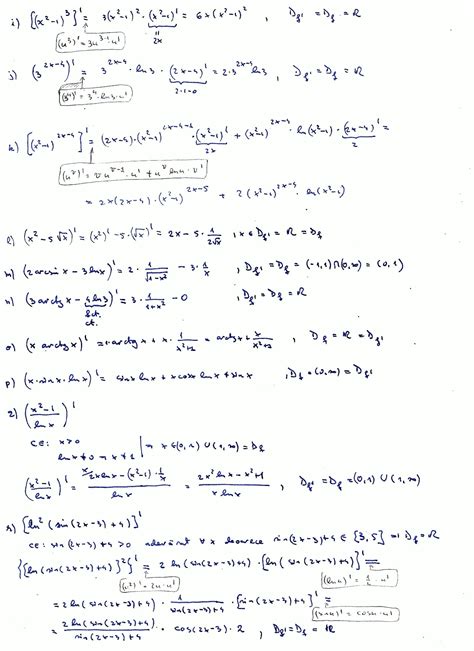 i) [(x²-1)³]' = 3(x²-1)²·(x²-1)' = 6x(x²-1)² , D_f' = D_f = R
2x
(u³)' = 3u³⁻¹·u'
j) (3^(2x-4))' = 3^(2x-4)·ln3·(2x-4)' = 2·3^(2x-4) ln3 , D_f' = D_f = R
2·1-0
(3^u)' = 3^u·ln3·u'
k) [(x²-1)^(2x-4)]' = (2x-4)·(x²-1)^(2x-4-1)·(x²-1)' + (x²-1)^(2x-4)·ln(x²-1)·(2x-4)' =
2x 2
(u^v)' = v u^(v-1)·u' + u^v ln u·v'
= 2x(2x-4)·(x²-1)^(2x-5) + 2(x²-1)^(2x-4)·ln(x²-1)
l) (x²-5√x)' = (x²)'-5·(√x)' = 2x-5·1/(2√x) , x∈D_f' = R = D_f
m) (2arcsin x-3lnx)' = 2·1/√(1-x²) - 3·1/x , D_f' = D_f = (-1,1)∩(0,∞) = (0,1)
n) (3arctg x - 4ln3)' = 3·1/(1+x²) - 0 , D_f' = D_f = R
fct.
ct.
o) (x arctg x)' = 1·arctg x + x·1/(x²+1) = arctg x + x/(x²+1) , D_f = R = D_f'
p) (x·sinx·lnx)' = sinx lnx + x cosx lnx + sinx , D_f = (0,∞) = D_f'
q) ((x²-1)/lnx)'
CE: x>0
lnx≠0 → x≠1 | → x∈(0,1)∪(1,∞) = D_f
((x²-1)/lnx)' = (2x lnx-(x²-1)·1/x)/lnx = (2x² lnx - x²+1)/(x lnx) , D_f' = D_f = (0,1)∪(1,∞)
r) [ln²(sin(2x-3)+4)]'
CE: sin(2x-3)+4 >0 adevărat ∀x deoarece sin(2x-3)+4 ∈ [3,5] ⇒ D_f = R
{[ln(sin(2x-3)+4)]²}' = 2 ln(sin(2x-3)+4)·[ln(sin(2x-3)+4)]' =
(u²)' = 2u·u' (ln u)' = 1/u·u'
= 2ln(sin(2x-3)+4)·1/(sin(2x-3)+4)·[sin(2x-3)+4]' =
(sin u)' = cos u·u'
= 2ln(sin(2x-3)+4)/(sin(2x-3)+4)·cos(2x-3)·2 , D_f' = D_f = R